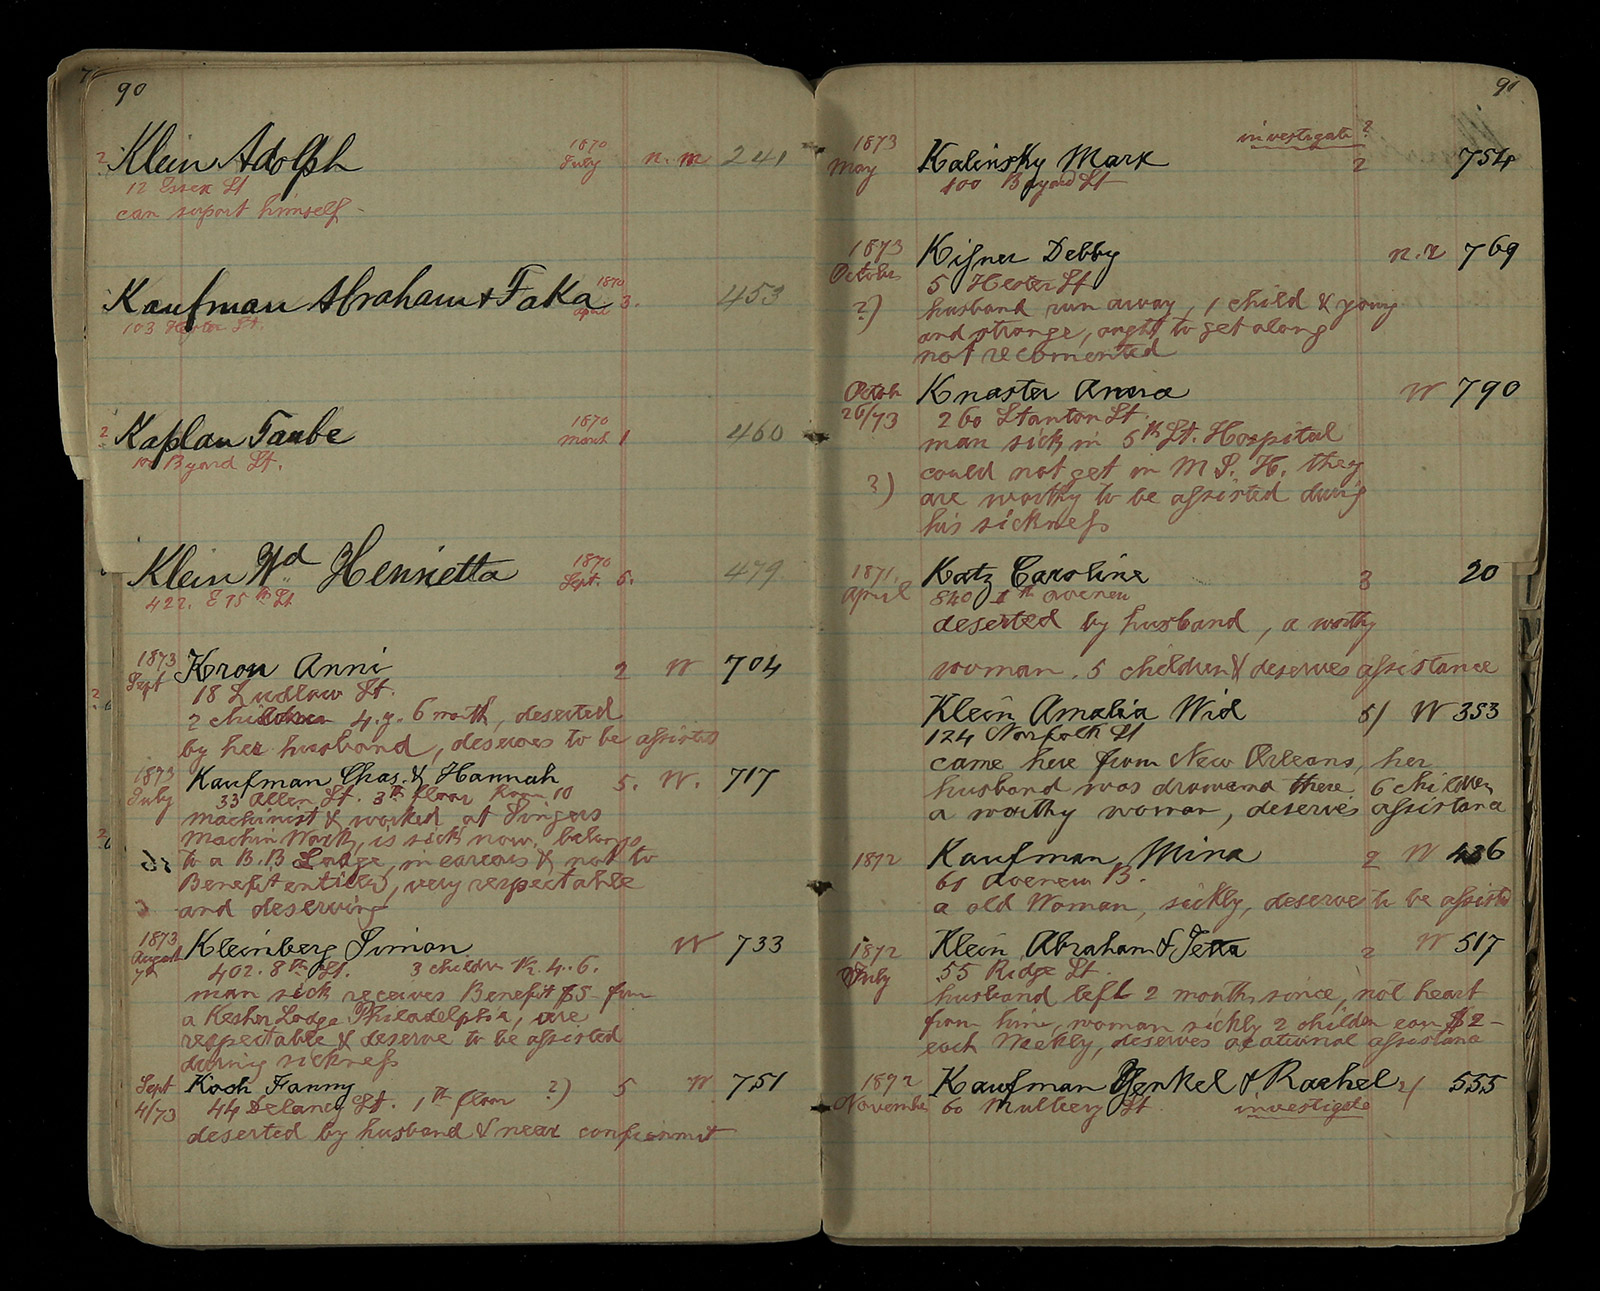 90
Klein Adolph 1870 July n. m 241
12 Essex St
can suport himself -
Kaufman Abraham & Faka 1870 April 3. 453
103 Hester St.
Kaplan Taube 1870 March 1 460
Byard St.
Klein Wd Henrietta 1870 Sept. 5. 479
422. E 75th St
1873 Sept Kron Anni 2 W 704
18 Ludlow St.
2 children 4. y. 6 month, deserted
by her husband, deserves to be assisted
1873 July Kaufman Chas. & Hannah 5. W. 717
33 Allen St. 3th floor Room 10
machinist & worked at Singers
Machin Work, is sick now, belongs
to a B.B Lodge, in carears & not to
Benefit entitled, very respectable
and deserving
1873 August 7th Kleinberg Simon W 733
402. 8th St. 3 childrn 4.. 6.
man sick receives Benefit $5 - from
a Kesher Lodge Philadelphia, are
respectable & deserve to be assisted
during sickness
Sept 4/73 Koch Fanny 5 W 751
44 Delancy St. 1th floor ?)
deserted by husband & near confienmit
91
investigate ?
1873 May Kalinsky Mark 2 754
100 Byard St
1873 October Kisner Debby n. r 769
5 Hester St
?) husband run away, 1 child & young
and strange, aught to get along
not recomented
Octob 26/73 Knaster Anna W 790
260 Stanton St.
man sick in 5th St. Hospital
could not get in M S. H. they
?) are worthy to be assisted durig
his sickness
1871 April Katz Caroline 3 20
840 1th aveneu
deserted by husband, a worthy
woman. 5 children & deserves assistance
Klein Amalia Wid 5/ W 353
124 Norfolk St
came here from New Orleans, her
husband was drownd there 6 children
a worthy woman, deserves assistance
1872 Kaufman Mina 2 W 436
61 Aveneu B.
a old Woman, sickly, deserve to be assisted
1872 July Klein Abraham & Jetta 2 W 517
55 Ridge St.
husband left 2 month since, not heart
from him, woman sickly 2 childen earn $2 -
each Weekly, deserves acational assistance
1872 November Kaufman Yenkel & Rachel 2/ 555
60 Mulbery St investigate